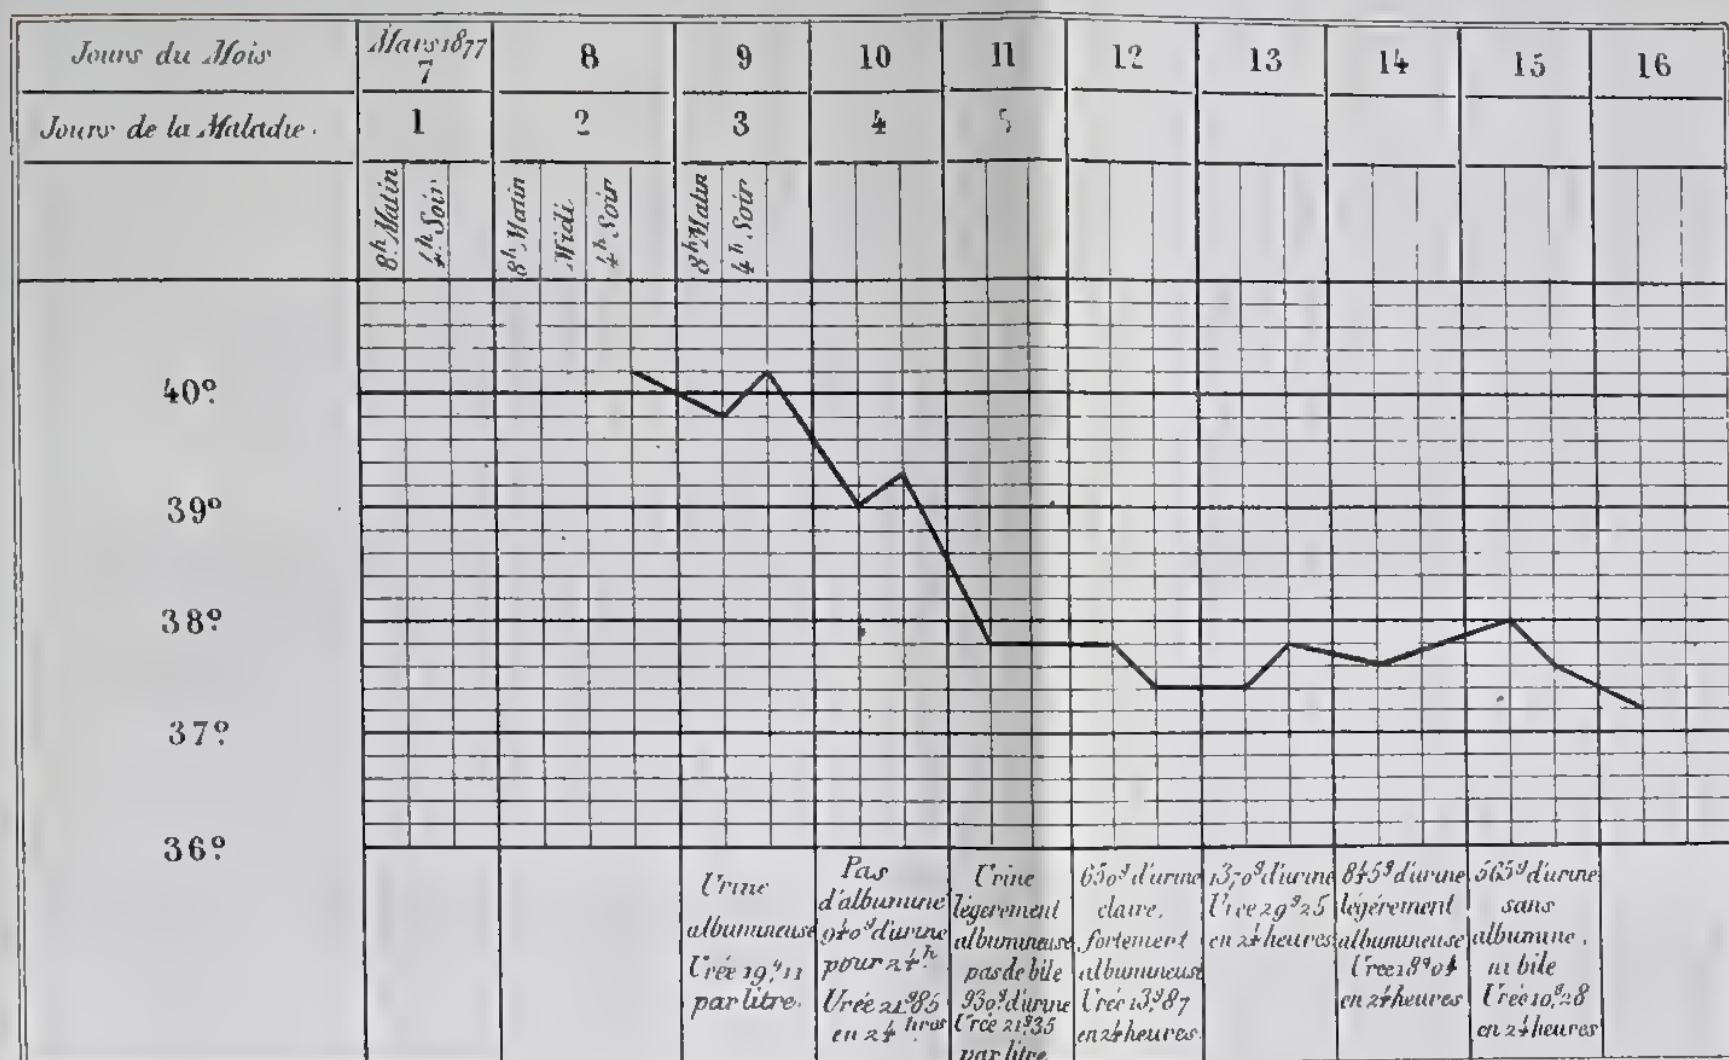 Jours du Mois
Mars 1877
7
8
9
10
11
12
13
14
15
16
Jours de la Maladie.
1
2
3
4
5
8h Matin
4h Soir
8h Matin
Midi
4h Soir
8h Matin
4h Soir
40º
39º
38º
37º
36º
Urine
albumineuse
Urée 19g11
par litre.
Pas
d'albumine
940g d'urine
pour 24h
Urée 21g85
en 24 hres
Urine
légerement
albumineuse,
pas de bile
930g d'urine
Urée 21g35
par litre
650g d'urine
claire,
fortement
albumineuse
Urée 13g87
en 24 heures.
1370g d'urine
Urée 29g25
en 24 heures
845g d'urine
légérement
albumineuse
Urée 18g04
en 24 heures
565g d'urine
sans
albumine,
ni bile
Urée 10g28
en 24 heures